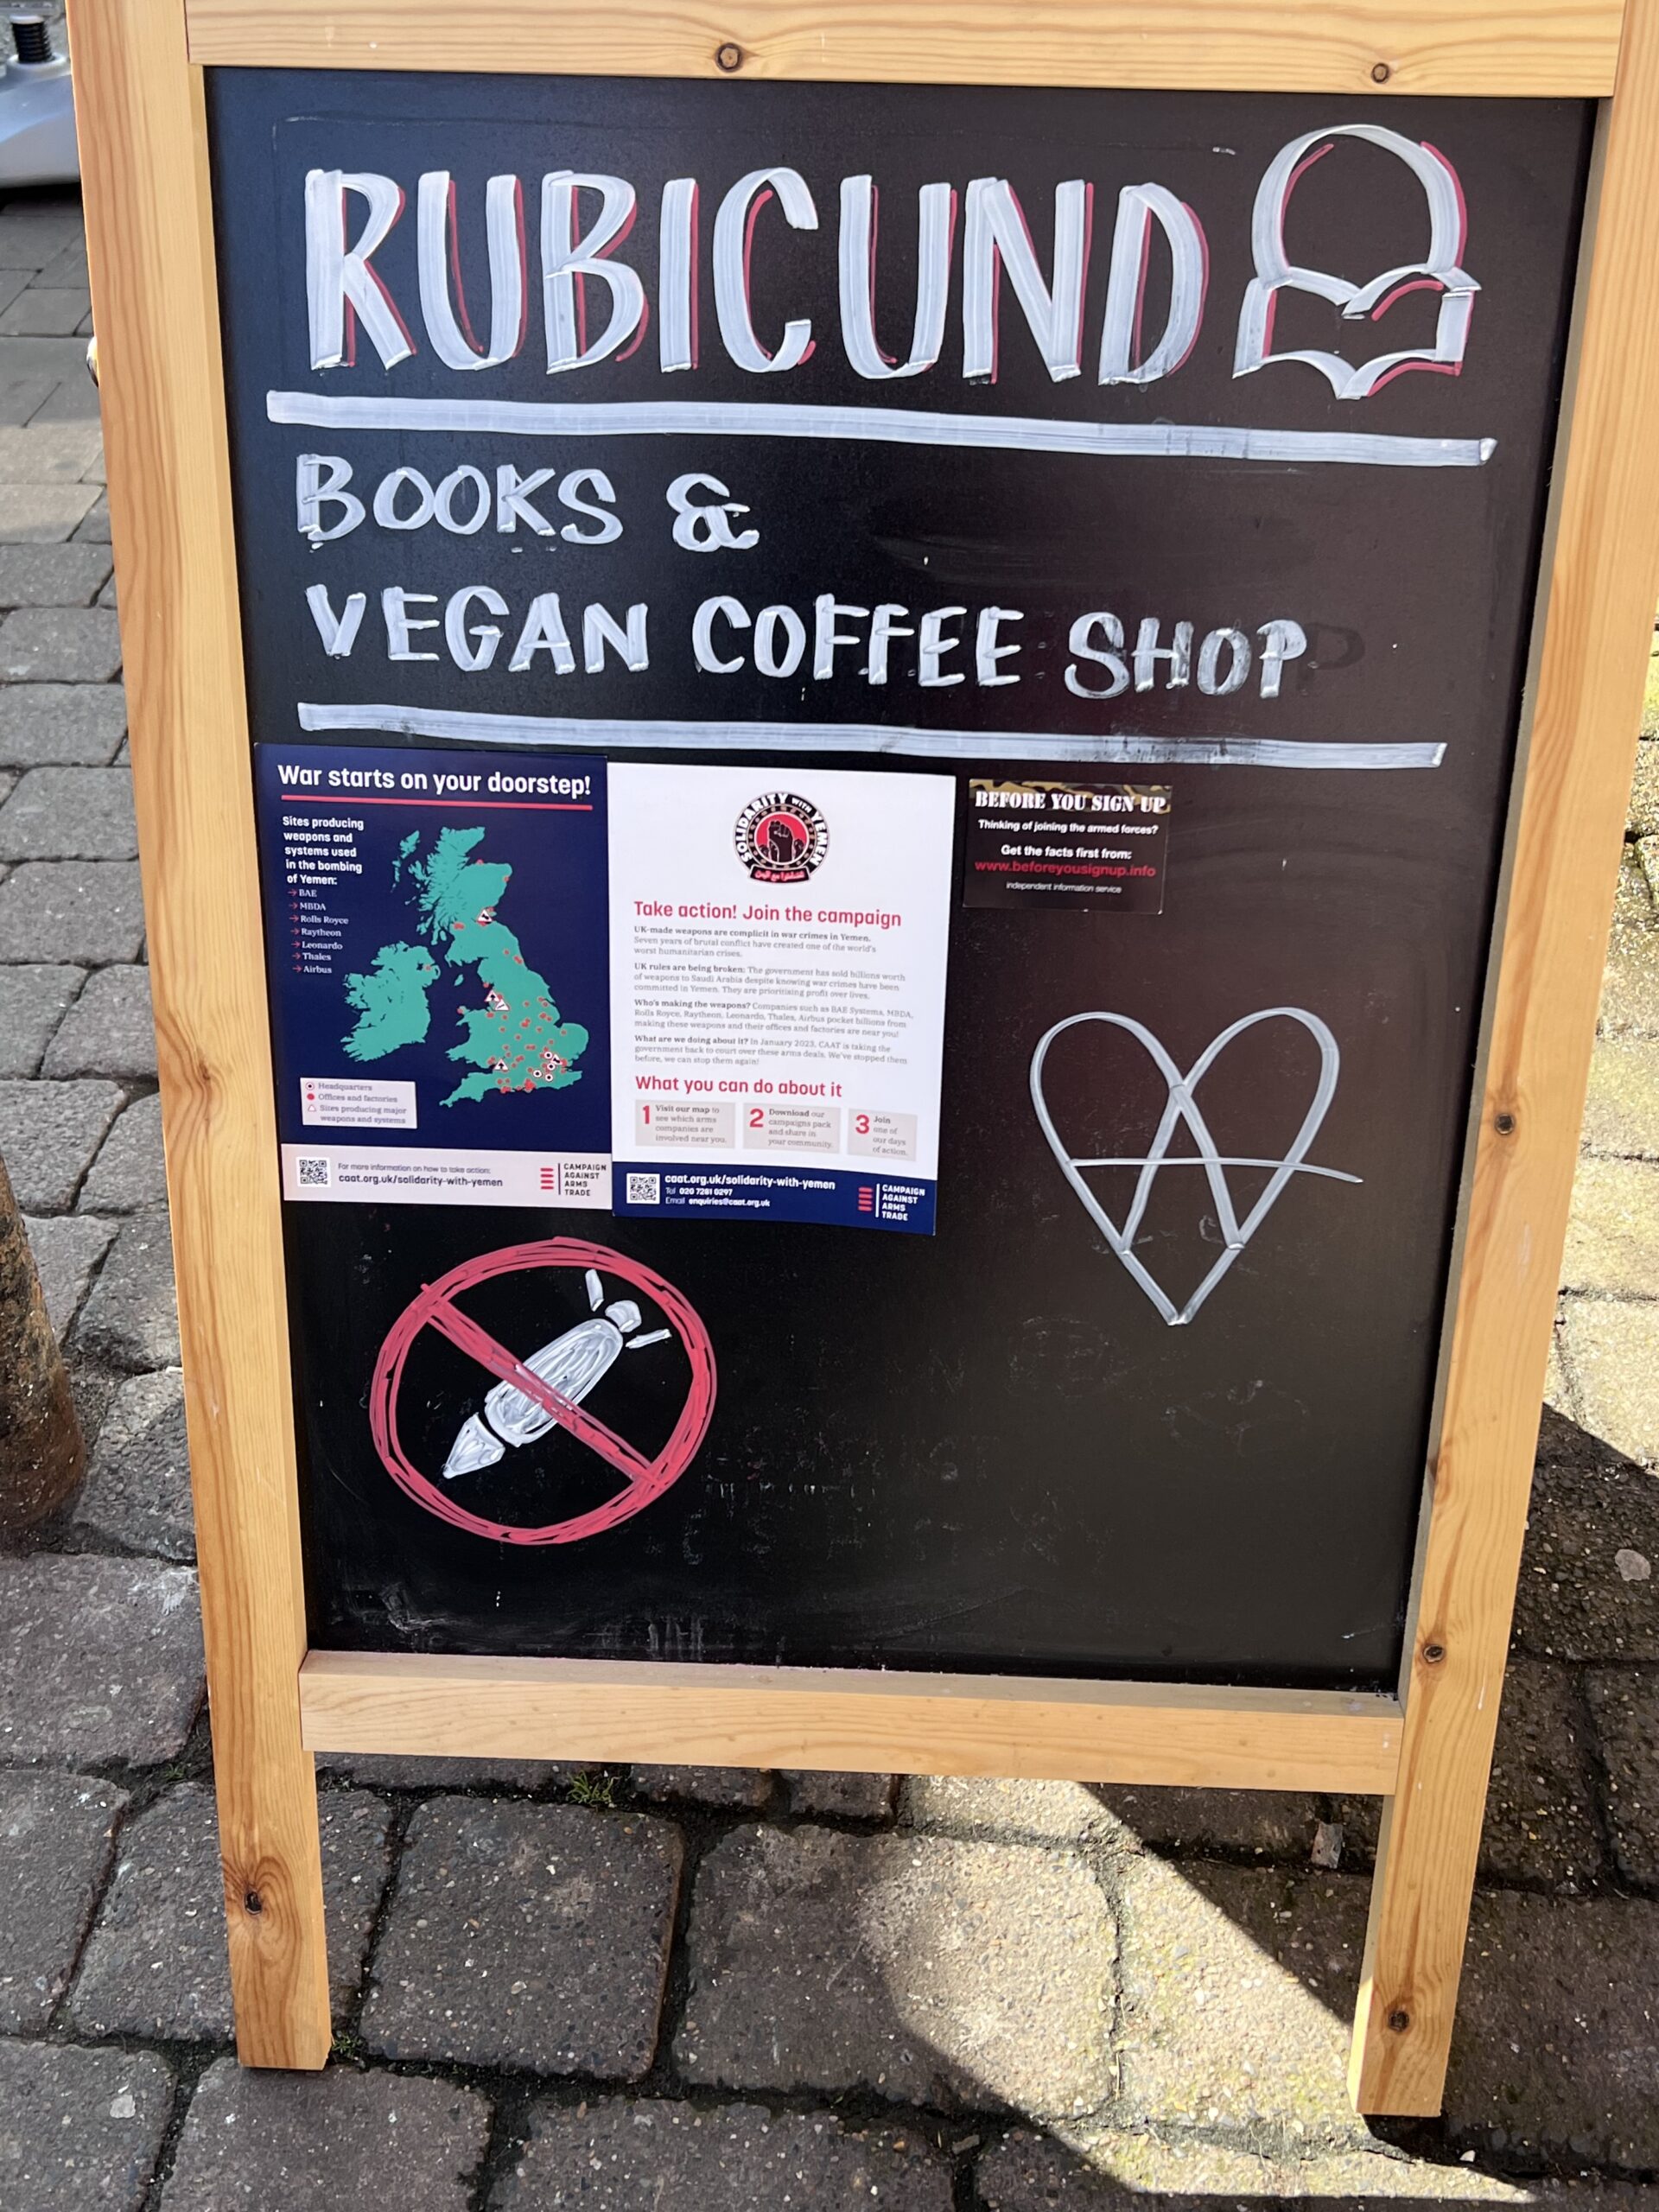 RUBICUND
BOOKS &
VEGAN COFFEE SHOP
War starts on your doorstep!
Sites producing
weapons and
systems used
in the bombing
of Yemen:
→ BAE
→ MBDA
→ Rolls Royce
→ Raytheon
→ Leonardo
→ Thales
→ Airbus
Headquarters
Offices and factories
Sites producing major
weapons and systems
For more information on how to take action:
caat.org.uk/solidarity-with-yemen
CAMPAIGN
AGAINST
ARMS
TRADE
SOLIDARITY WITH YEMEN
Take action! Join the campaign
UK-made weapons are complicit in war crimes in Yemen.
Seven years of brutal conflict have created one of the world's
worst humanitarian crises.
UK rules are being broken: The government has sold billions worth
of weapons to Saudi Arabia despite knowing war crimes have been
committed in Yemen. They are prioritising profit over lives.
Who's making the weapons? Companies such as BAE Systems, MBDA,
Rolls Royce, Raytheon, Leonardo, Thales, Airbus pocket billions from
making these weapons and their offices and factories are near you!
What are we doing about it? In January 2023, CAAT is taking the
government back to court over these arms deals. We've stopped them
before, we can stop them again!
What you can do about it
1 Visit our map to
see which arms
companies are
involved near you.
2 Download our
campaigns pack
and share in
your community.
3 Join
one of
our days
of action.
caat.org.uk/solidarity-with-yemen
Tel 020 7281 0297
Email enquiries@caat.org.uk
CAMPAIGN
AGAINST
ARMS
TRADE
BEFORE YOU SIGN UP
Thinking of joining the armed forces?
Get the facts first from:
www.beforeyousignup.info
independent information service